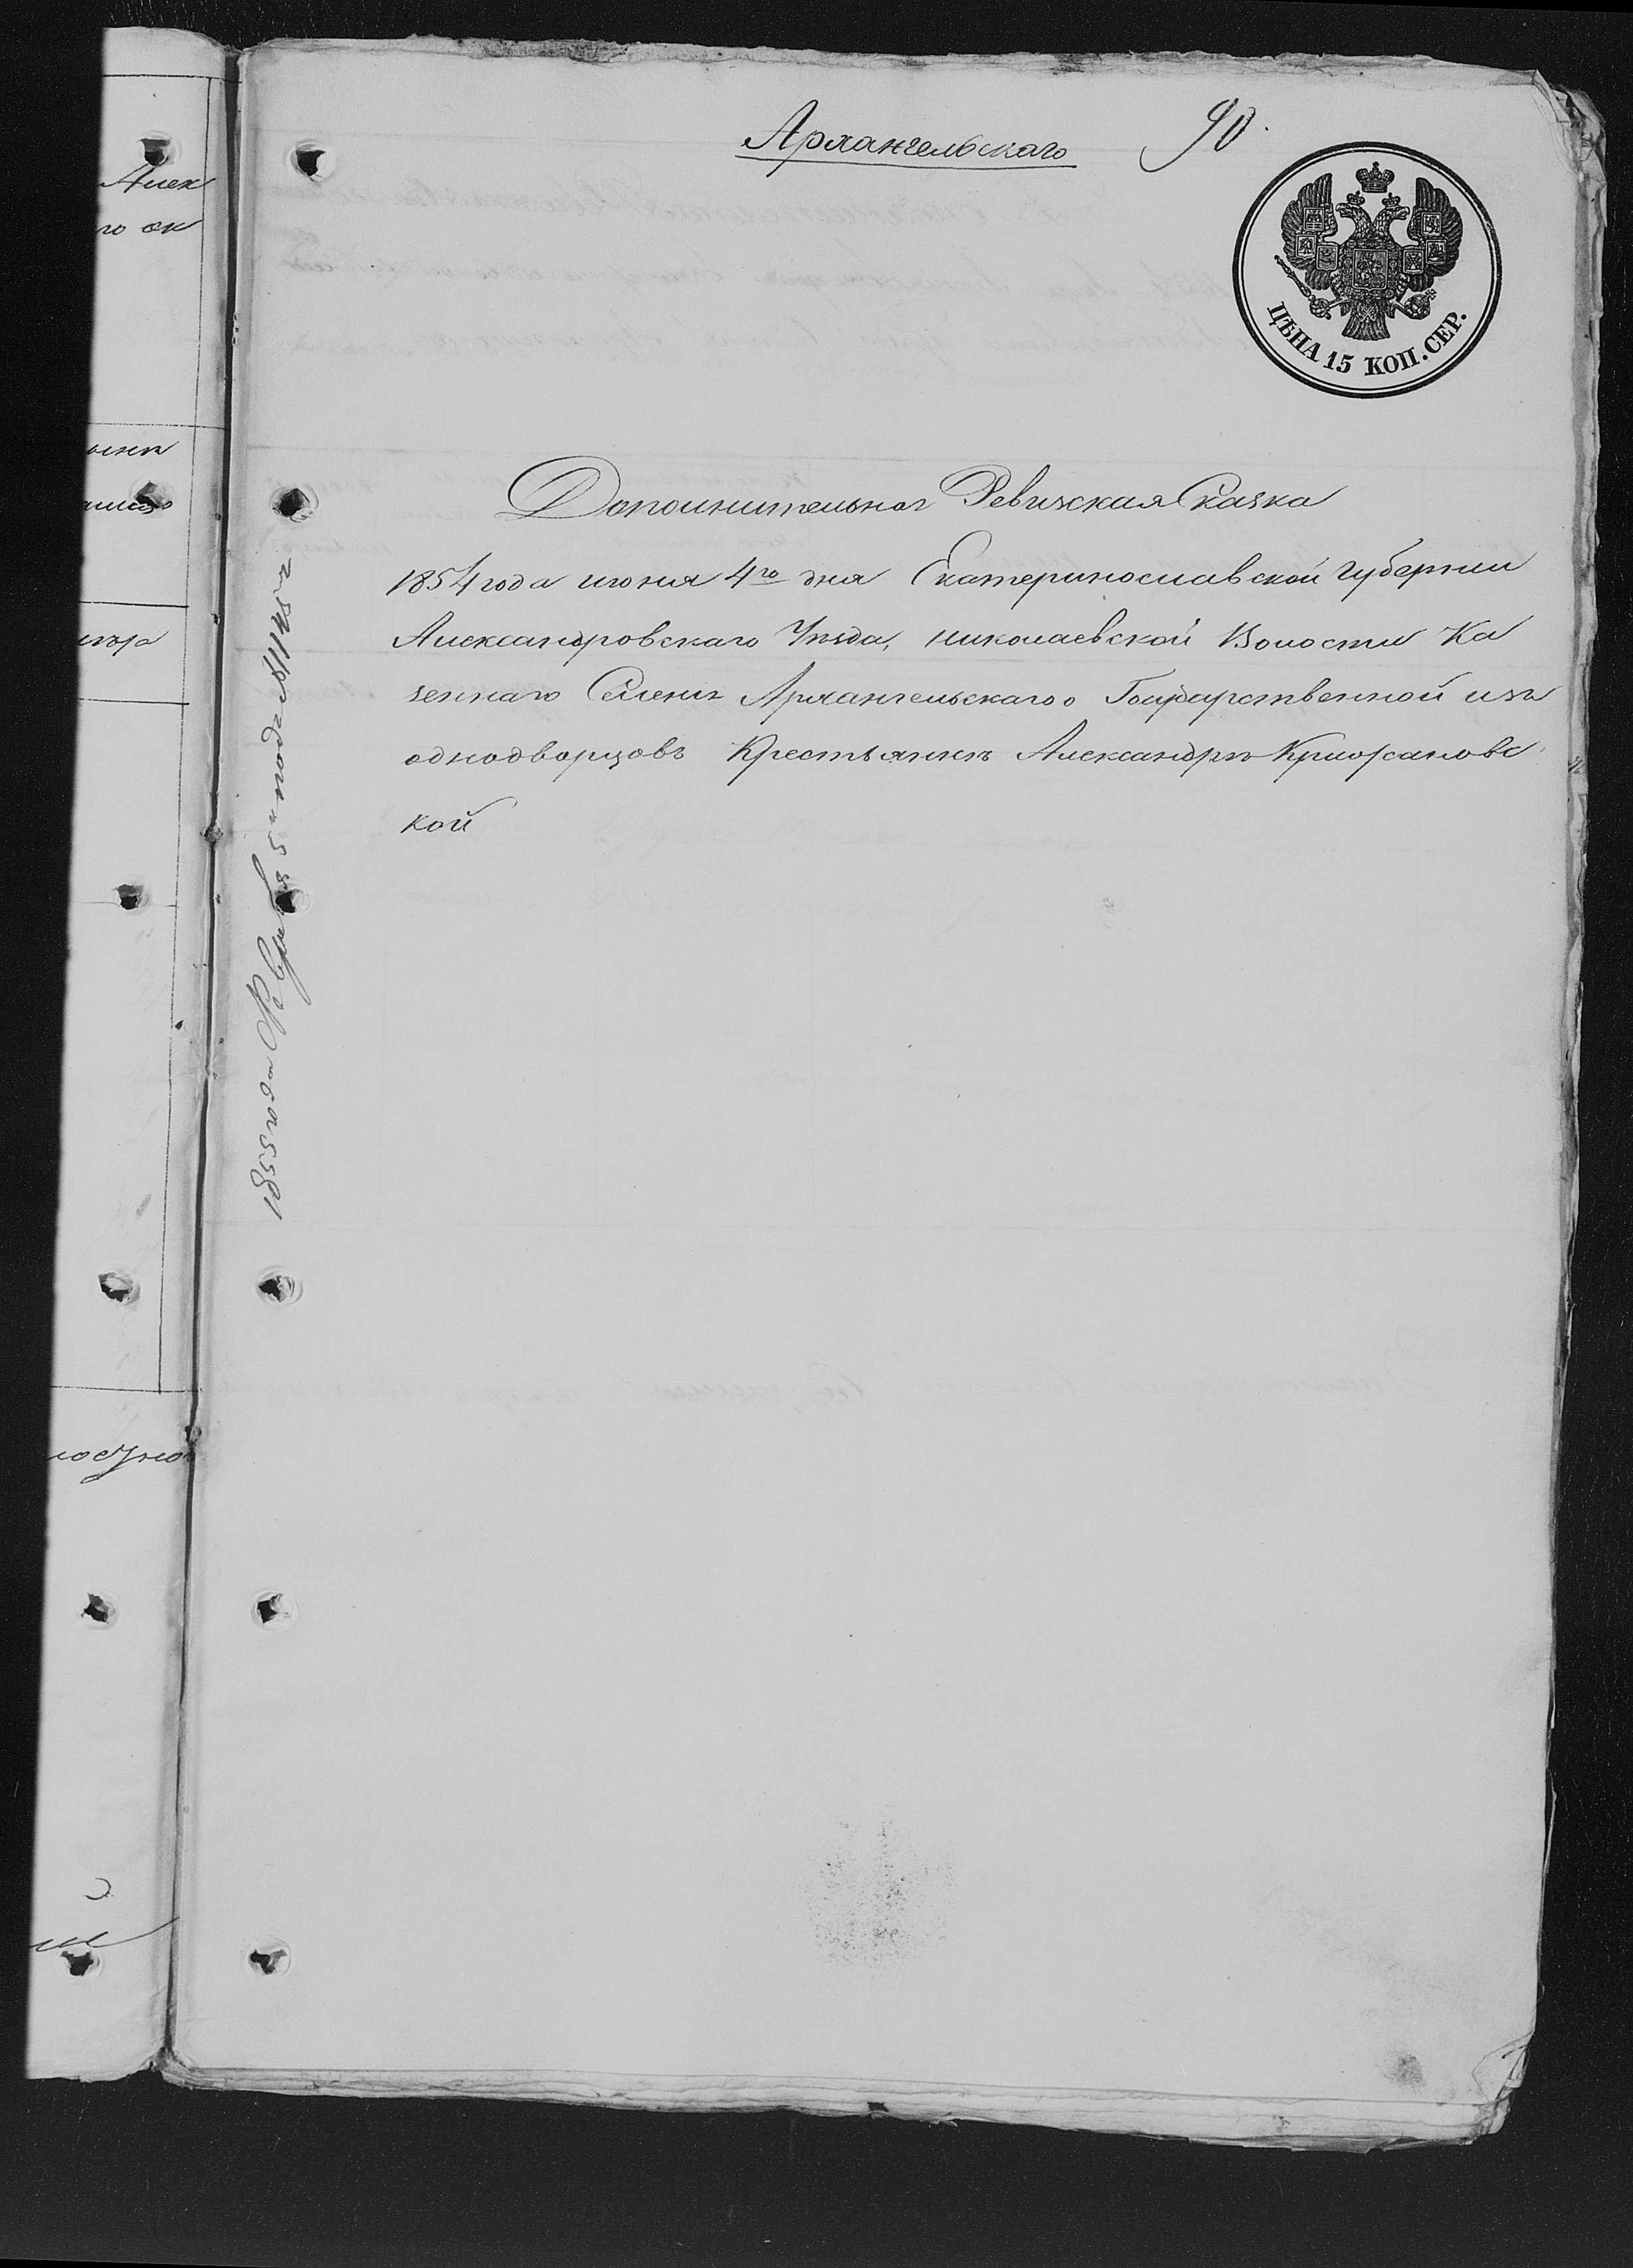 Архангельскаго
90.
ЦѢНА 15 КОП. СЕР.
Дополнительная Ревизская Сказка
1854 года июня 4го дня Екатеринославской Губернии
Александровскаго Уѣзда, николаевской Волости Ка
зеннаго Селенія Архангельскаго Государственной изъ
однодворцовъ Крестьянинъ Александръ Крижановс
кой
1855 года Февраля 5 подъ №1145
Алек
го ок